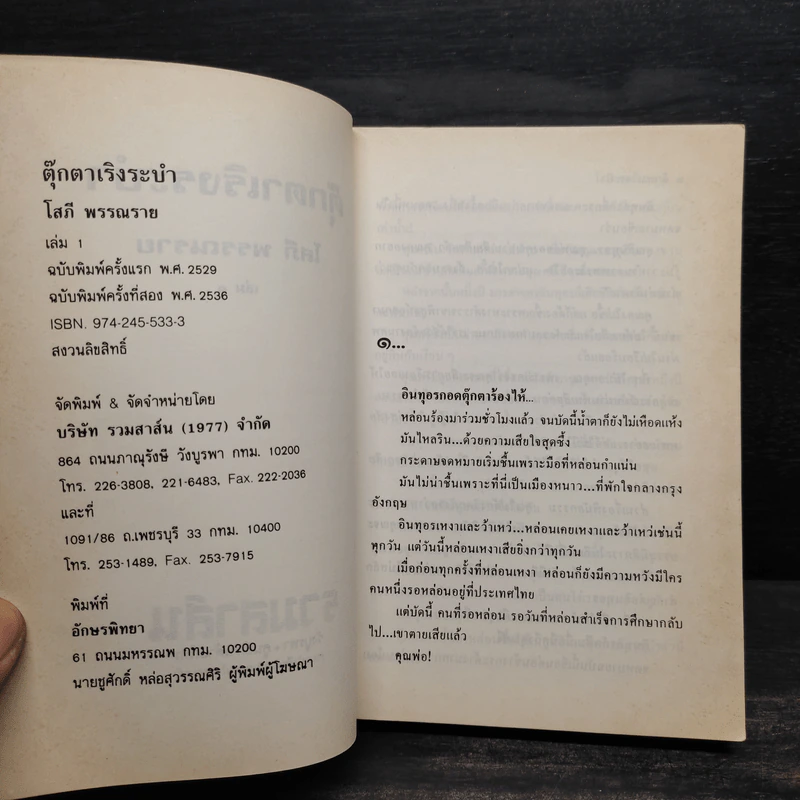 ตุ๊กตาเริงระบำ
โสภี พรรณราย
เล่ม 1
ฉบับพิมพ์ครั้งแรก พ.ศ. 2529
ฉบับพิมพ์ครั้งที่สอง พ.ศ. 2536
ISBN. 974-245-533-3
สงวนลิขสิทธิ์
จัดพิมพ์ & จัดจำหน่ายโดย
บริษัท รวมสาส์น (1977) จำกัด
864 ถนนภาณุรังษี วังบูรพา กทม. 10200
โทร. 226-3808, 221-6483, Fax. 222-2036
และที่
1091/86 ถ.เพชรบุรี 33 กทม. 10400
โทร. 253-1489, Fax. 253-7915
พิมพ์ที่
อักษรพิทยา
61 ถนนมหรรณพ กทม. 10200
นายชูศักดิ์ หล่อสุวรรณศิริ ผู้พิมพ์ผู้โฆษณา
๑...
อินทุอรกอดตุ๊กตาร้องไห้...
หล่อนร้องมาร่วมชั่วโมงแล้ว จนบัดนี้น้ำตาก็ยังไม่เหือดแห้ง
มันไหลริน...ด้วยความเสียใจสุดซึ้ง
กระดาษจดหมายเริ่มชื้นเพราะมือที่หล่อนกำแน่น
มันไม่น่าชื้นเพราะที่นี่เป็นเมืองหนาว...ที่พักใจกลางกรุง
อังกฤษ
อินทุอรเหงาและว้าเหว่...หล่อนเคยเหงาและว้าเหว่เช่นนี้
ทุกวัน แต่วันนี้หล่อนเหงาเสียยิ่งกว่าทุกวัน
เมื่อก่อนทุกครั้งที่หล่อนเหงา หล่อนก็ยังมีความหวังมีใคร
คนหนึ่งรอหล่อนอยู่ที่ประเทศไทย
แต่บัดนี้ คนที่รอหล่อน รอวันที่หล่อนสำเร็จการศึกษากลับ
ไป...เขาตายเสียแล้ว
คุณพ่อ!